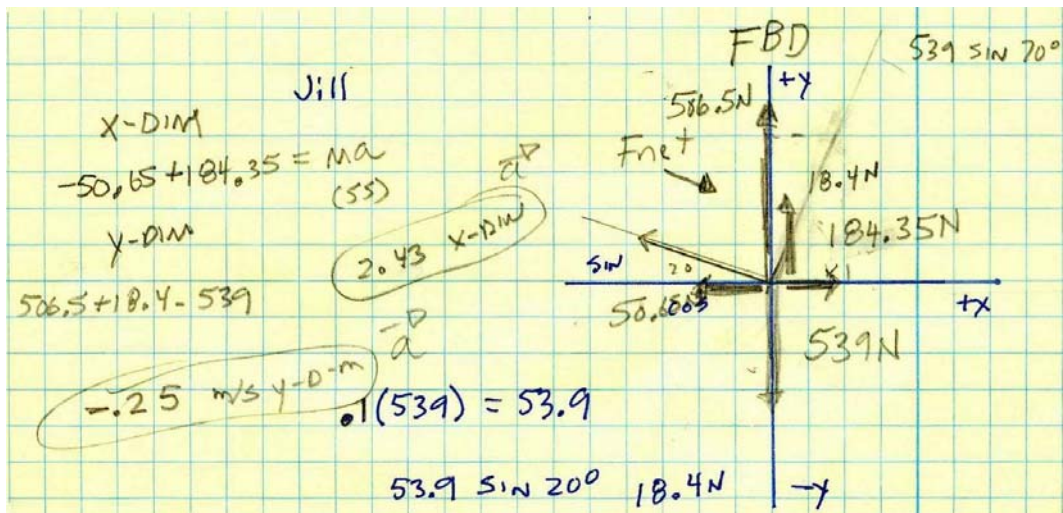 Jill
X-DIM
-50.65+184.35 = Ma
(55)
a
2.43 X-DIM
Y-DIM
506.5+18.4-539
a
-.25 m/s y-D-m
.1(539) = 53.9
53.9 SIN 20° 18.4N
FBD
539 SIN 70°
+y
506.5N
Fnet
18.4N
184.35N
SIN
20
50.65
cos
+x
539N
-y